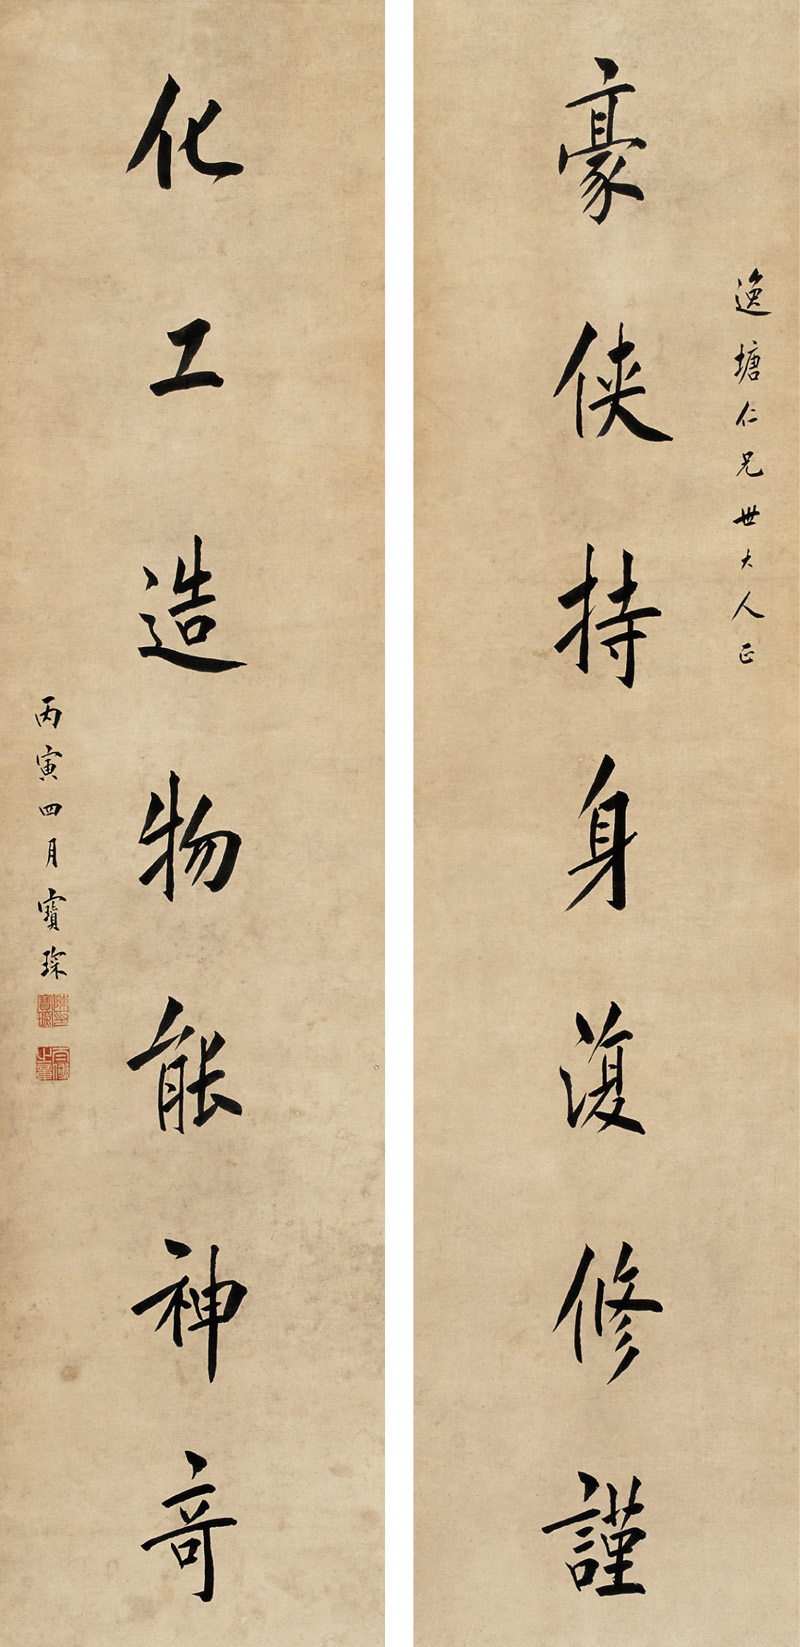 逸塘仁兄世大人正
豪俠持身復修謹
化工造物能神奇
丙寅四月寶琛
陳印寶琛